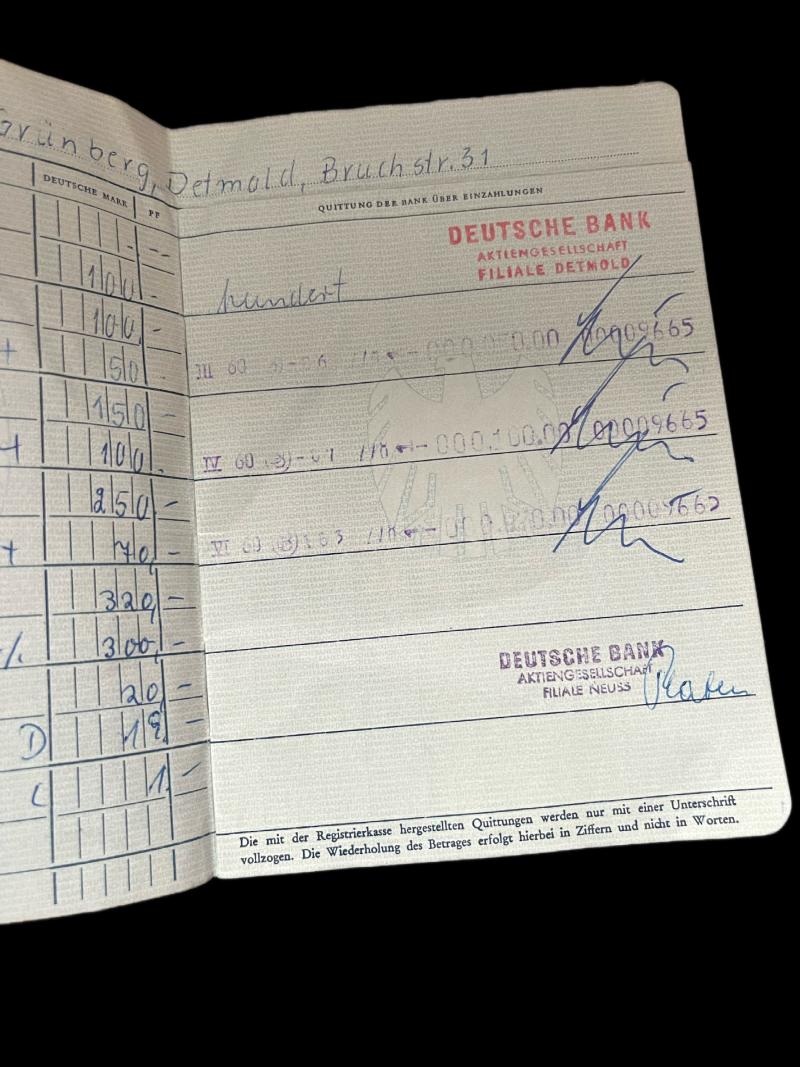 Grünberg, Detmold, Bruchstr. 31
DEUTSCHE MARK PF
QUITTUNG DER BANK ÜBER EINZAHLUNGEN
DEUTSCHE BANK
AKTIENGESELLSCHAFT
FILIALE DETMOLD
hundert
100 -
100 -
+ 50 -
III 60 00009665
150 -
+ 100 -
IV 60 000.100.00 00009665
250 -
+ 70 -
VI 60
320 -
300 -
DEUTSCHE BANK
AKTIENGESELLSCHAFT
FILIALE NEUSS
20 -
D 19 -
1 -
Die mit der Registrierkasse hergestellten Quittungen werden nur mit einer Unterschrift
vollzogen. Die Wiederholung des Betrages erfolgt hierbei in Ziffern und nicht in Worten.